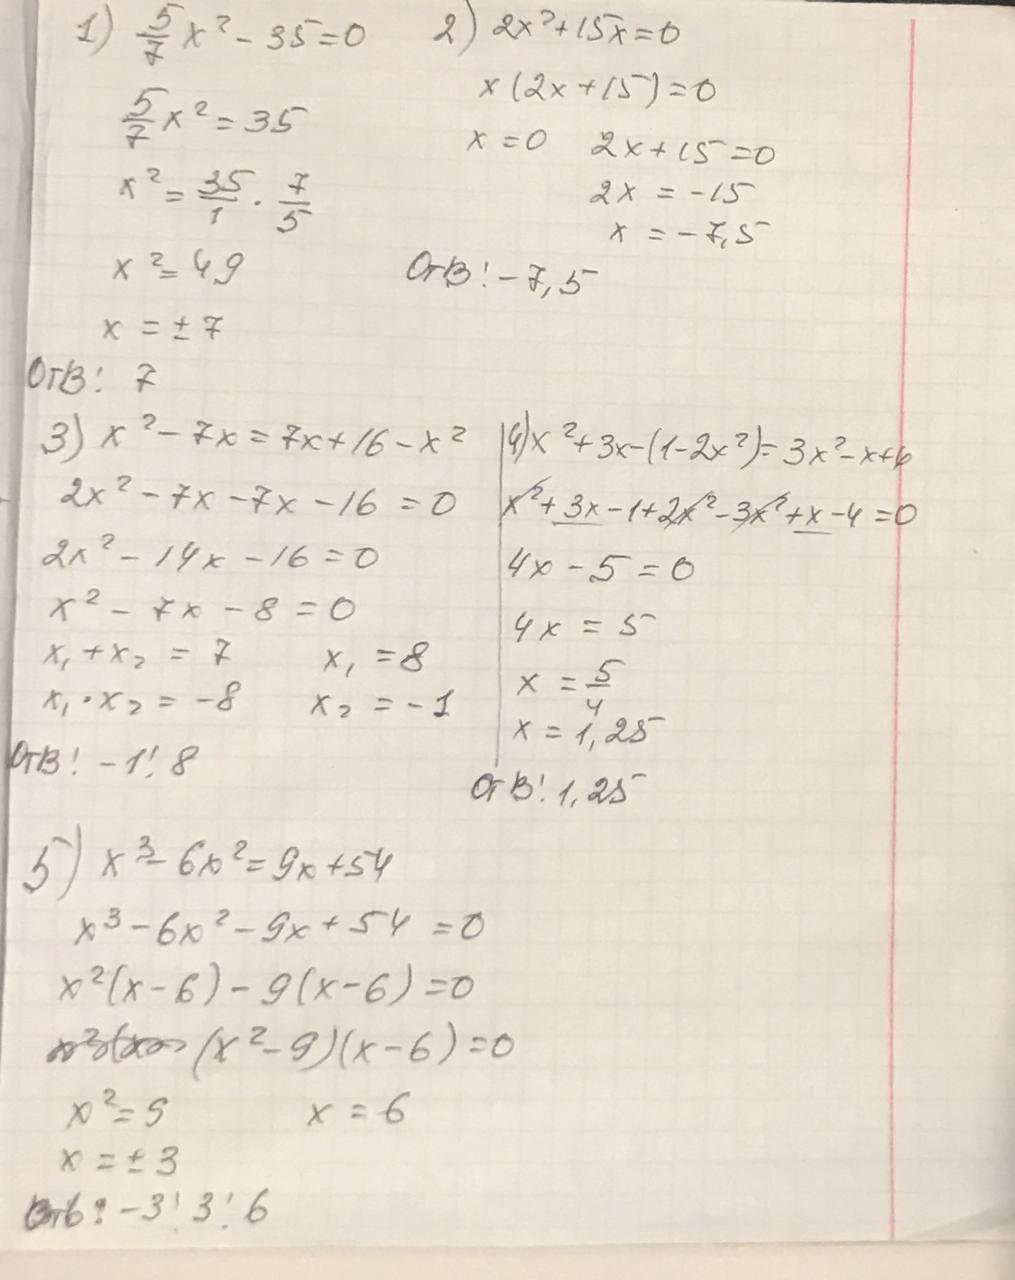 1) 5/7 x² - 35 = 0
5/7 x² = 35
x² = 35/1 · 7/5
x² = 49
x = ± 7
Отв: 7
2) 2x² + 15x = 0
x (2x + 15) = 0
x = 0 2x + 15 = 0
2x = -15
x = -7,5
Отв: -7,5
3) x² - 7x = 7x + 16 - x²
2x² - 7x - 7x - 16 = 0
2x² - 14x - 16 = 0
x² - 7x - 8 = 0
x₁ + x₂ = 7 x₁ = 8
x₁ · x₂ = -8 x₂ = -1
Отв: -1; 8
4) x² + 3x - (1 - 2x²) = 3x² - x +
x² + 3x - 1 + 2x² - 3x² + x - 4 = 0
4x - 5 = 0
4x = 5
x = 5/4
x = 1,25
Отв: 1,25
5) x³ - 6x² = 9x + 54
x³ - 6x² - 9x + 54 = 0
x² (x - 6) - 9 (x - 6) = 0
(x² - 9)(x - 6) = 0
x² = 9 x = 6
x = ± 3
Отв: -3; 3; 6